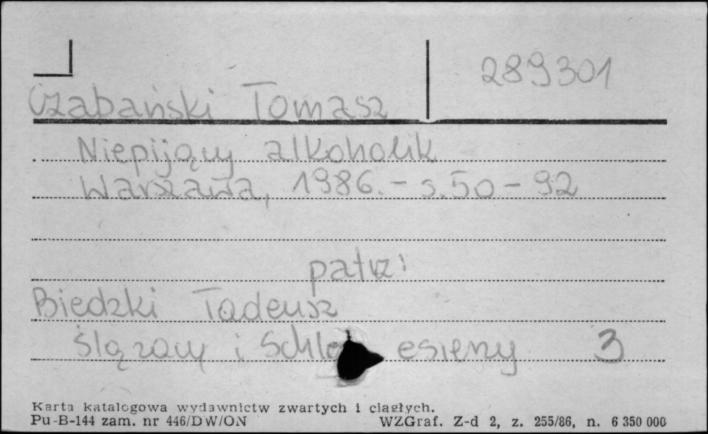 289301
Czabański Tomasz
Niepijący alkoholik
Warszawa, 1986. - s. 50 - 92
patrz:
Biedzki Tadeusz
Ślązacy i Schle esieny 3
Karta katalogowa wydawnictw zwartych i ciągłych.
Pu-B-144 zam. nr 446/DW/ON WZGraf. Z-d 2, z. 255/86, n. 6 350 000